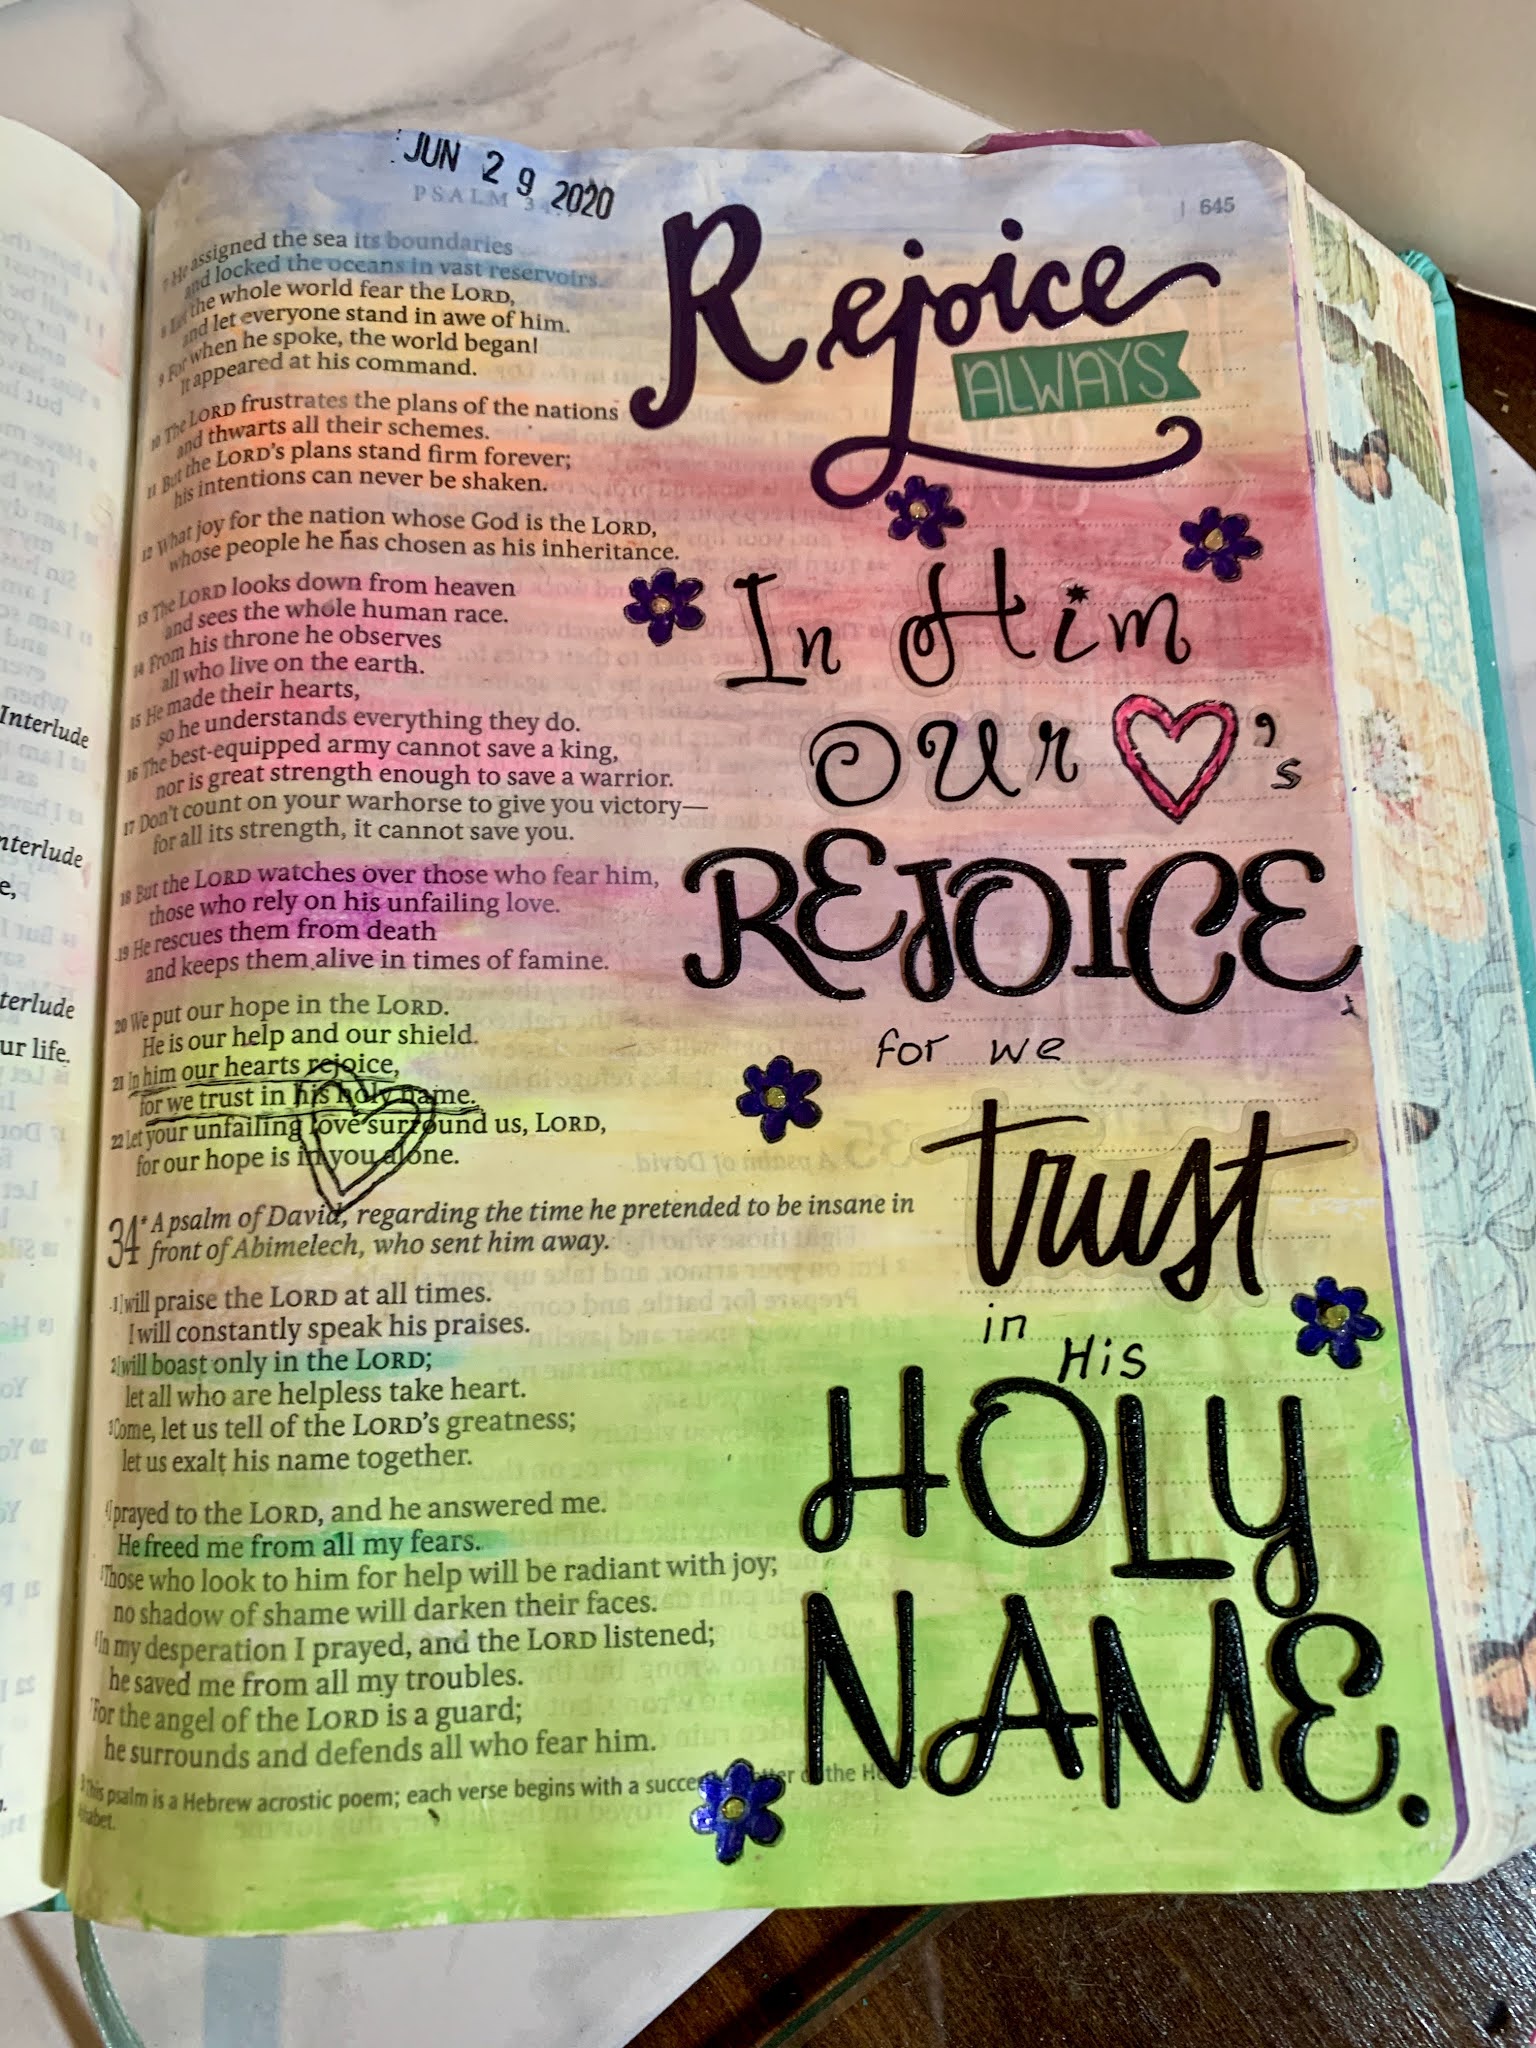 JUN 29 2020
PSALM 3
645
7 He assigned the sea its boundaries
and locked the oceans in vast reservoirs.
8 Let the whole world fear the LORD,
and let everyone stand in awe of him.
9 For when he spoke, the world began!
It appeared at his command.
10 The LORD frustrates the plans of the nations
and thwarts all their schemes.
11 But the LORD's plans stand firm forever;
his intentions can never be shaken.
12 What joy for the nation whose God is the LORD,
whose people he has chosen as his inheritance.
13 The LORD looks down from heaven
and sees the whole human race.
14 From his throne he observes
all who live on the earth.
15 He made their hearts,
so he understands everything they do.
16 The best-equipped army cannot save a king,
nor is great strength enough to save a warrior.
17 Don't count on your warhorse to give you victory—
for all its strength, it cannot save you.
18 But the LORD watches over those who fear him,
those who rely on his unfailing love.
19 He rescues them from death
and keeps them alive in times of famine.
20 We put our hope in the LORD.
He is our help and our shield.
21 In him our hearts rejoice,
for we trust in his holy name.
22 Let your unfailing love surround us, LORD,
for our hope is in you alone.
34* A psalm of David, regarding the time he pretended to be insane in
front of Abimelech, who sent him away.
1 I will praise the LORD at all times.
I will constantly speak his praises.
2 I will boast only in the LORD;
let all who are helpless take heart.
3 Come, let us tell of the LORD's greatness;
let us exalt his name together.
4 I prayed to the LORD, and he answered me.
He freed me from all my fears.
Those who look to him for help will be radiant with joy;
no shadow of shame will darken their faces.
In my desperation I prayed, and the LORD listened;
he saved me from all my troubles.
For the angel of the LORD is a guard;
he surrounds and defends all who fear him.
This psalm is a Hebrew acrostic poem; each verse begins with a of the
Rejoice
ALWAYS
In Him
our 's
REJOICE,
for we
trust
in
His
HOLY
NAME.
Interlude
ur life.